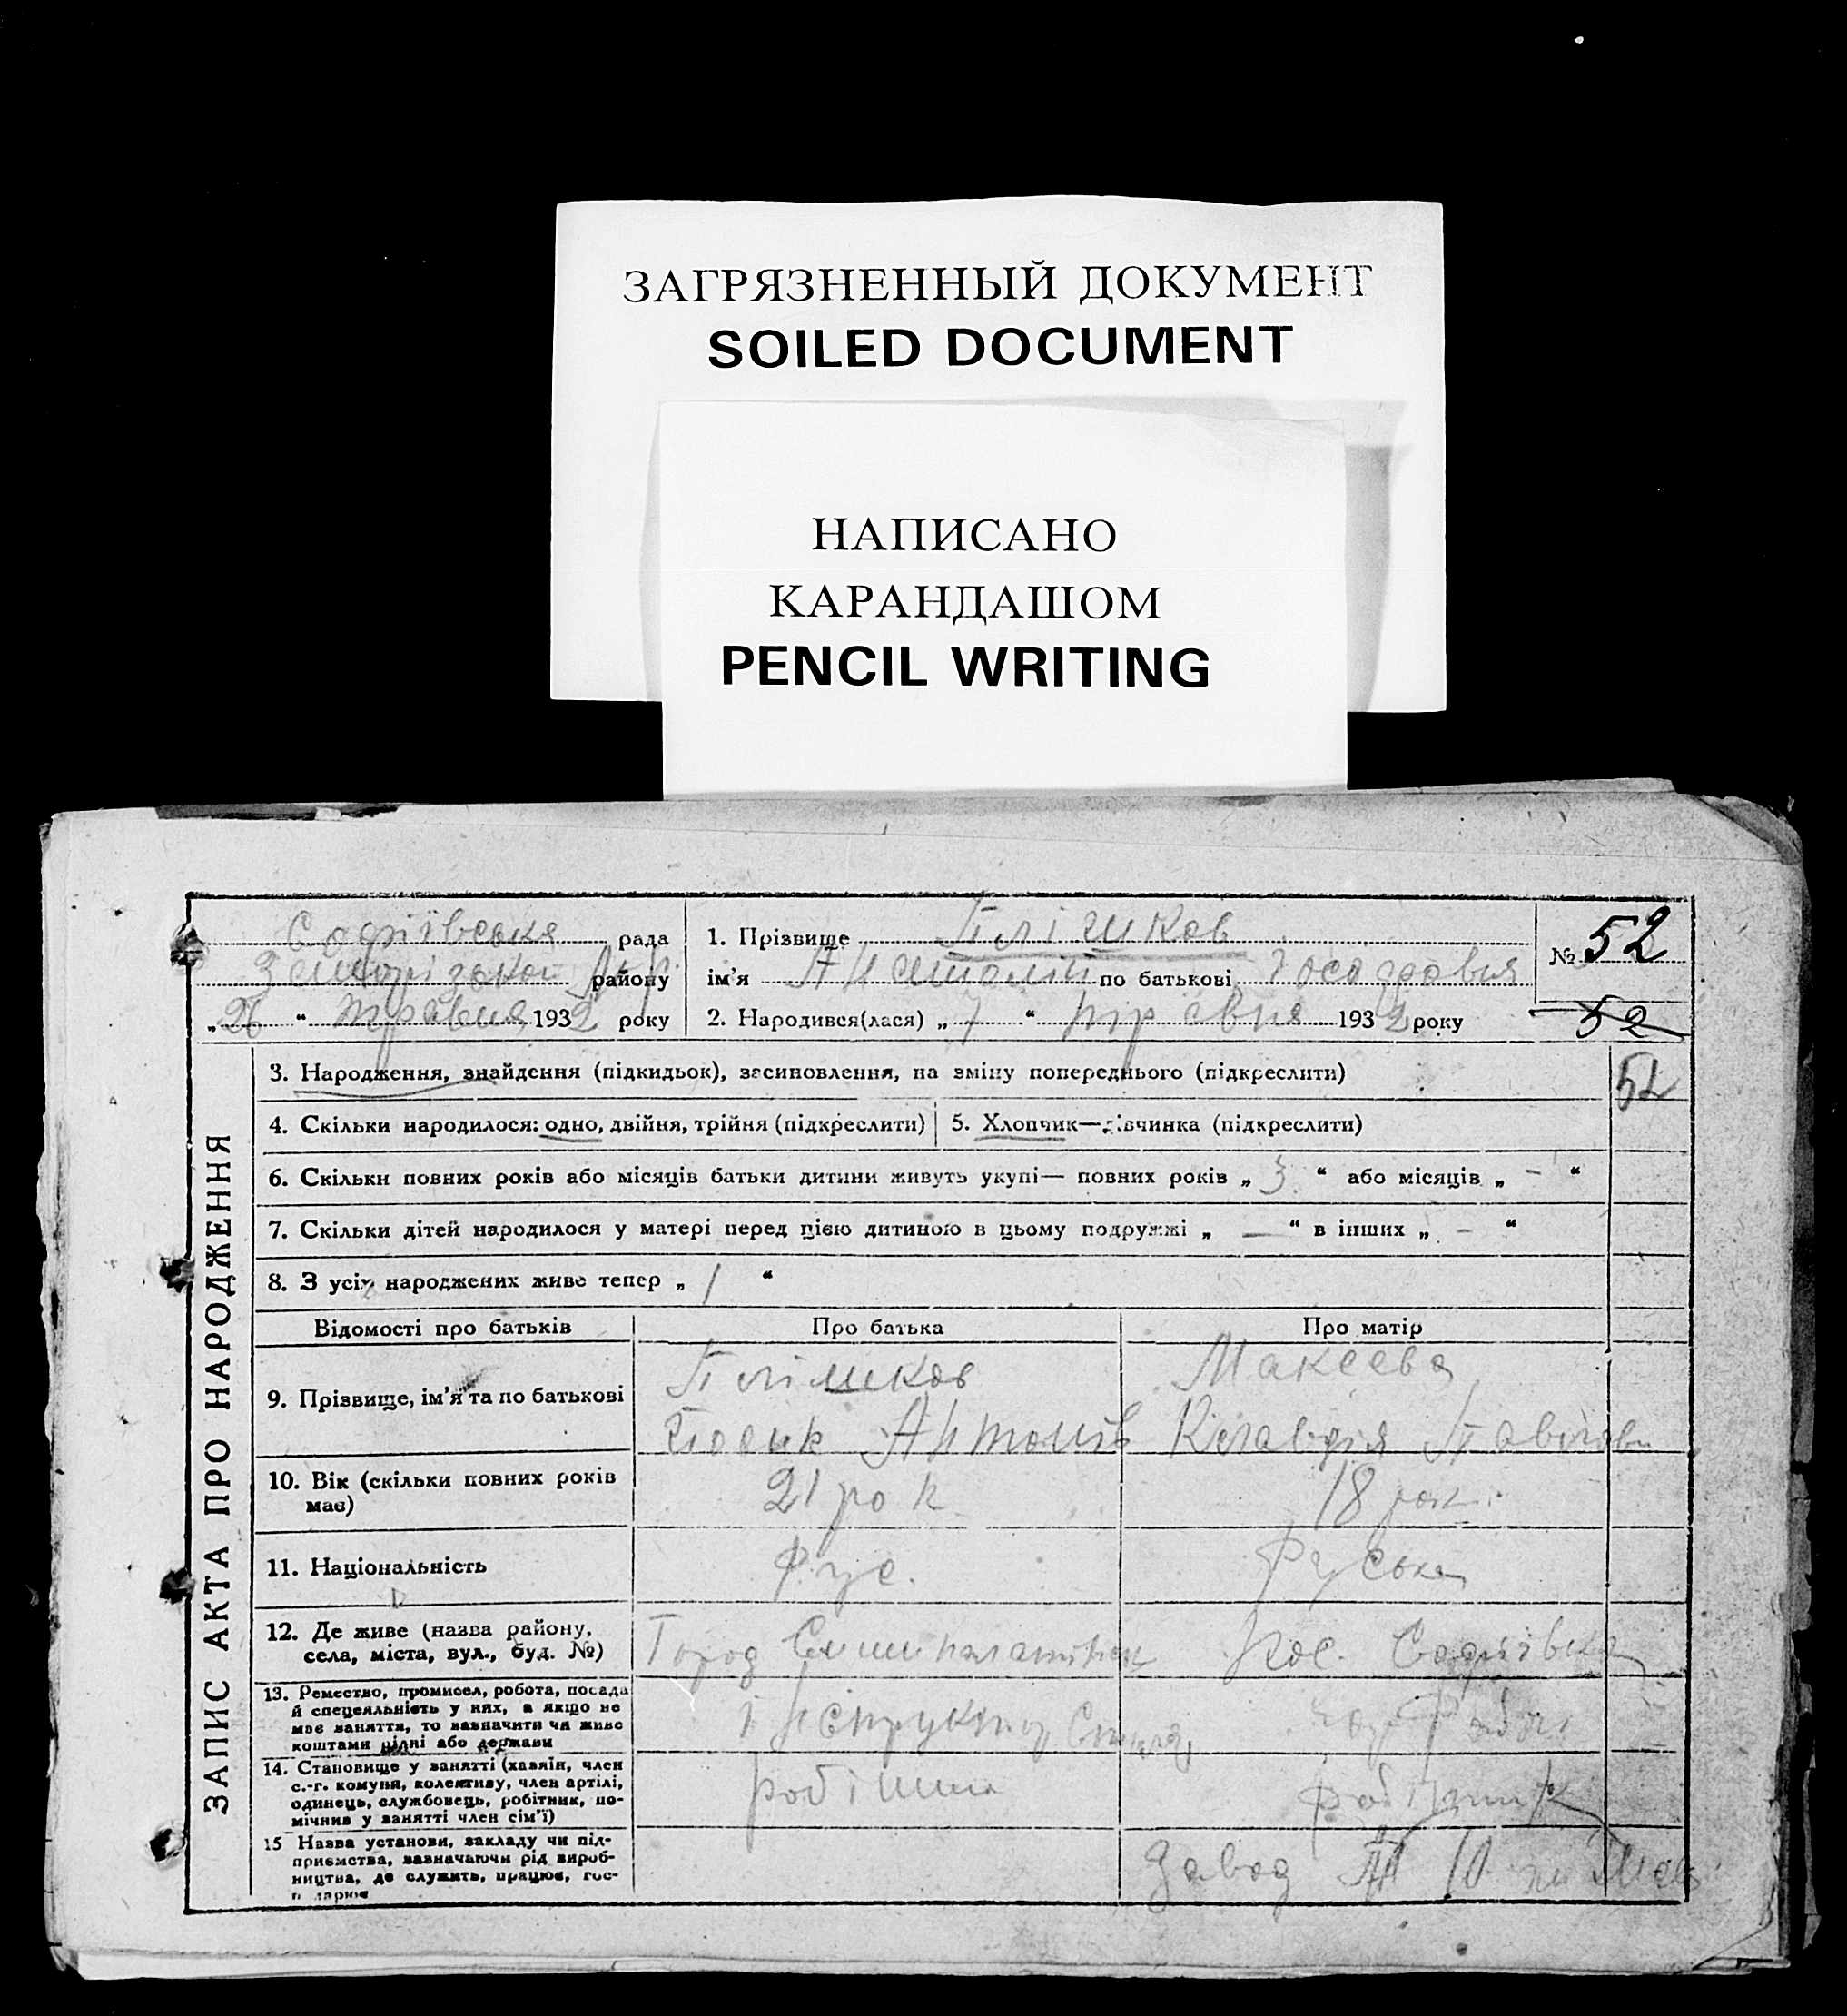 ЗАГРЯЗНЕННЫЙ ДОКУМЕНТ
SOILED DOCUMENT
НАПИСАНО
КАРАНДАШОМ
PENCIL WRITING
Софіївська рада
району
„26“ травня 1932 року
1. Прізвище
ім’я Анатолій по батькові
2. Народився(лася) „7“ травня 1932 року
№ 52
52
52
ЗАПИС АКТА ПРО НАРОДЖЕННЯ
3. Народження, знайдення (підкидьок), засиновлення, на зміну попереднього (підкреслити)
4. Скільки народилося: одно, двійня, трійня (підкреслити)
5. Хлопчик—дівчинка (підкреслити)
6. Скільки повних років або місяців батьки дитини живуть укупі— повних років „3“ або місяців „-“
7. Скільки дітей народилося у матері перед цією дитиною в цьому подружжі „—“ в інших „-“
8. З усіх народжених живе тепер „1“
Відомості про батьків
Про батька
Про матір
9. Прізвище, ім’я та по батькові
Макеева
Клавдія
10. Вік (скільки повних років
має)
21 рок
18 рок.
11. Національність
Рус.
Руська
12. Де живе (назва району,
села, міста, вул., буд. №)
Город
Пос. Софіївка
13. Ремество, промисел, робота, посада
й спецеяльність у них, а якщо не
має заняття, то зазначити чи живе
коштами рідні або держави
14. Становище у занятті (хазяїн, член
с.-г. комуни, колективу, член артілі,
одинець, службовець, робітник, по-
мічник у занятті член сім’ї)
15 Назва установи, закладу чи під-
приємства, зазначаючи рід вироб-
ництва, де служить, працює, гос-
Завод